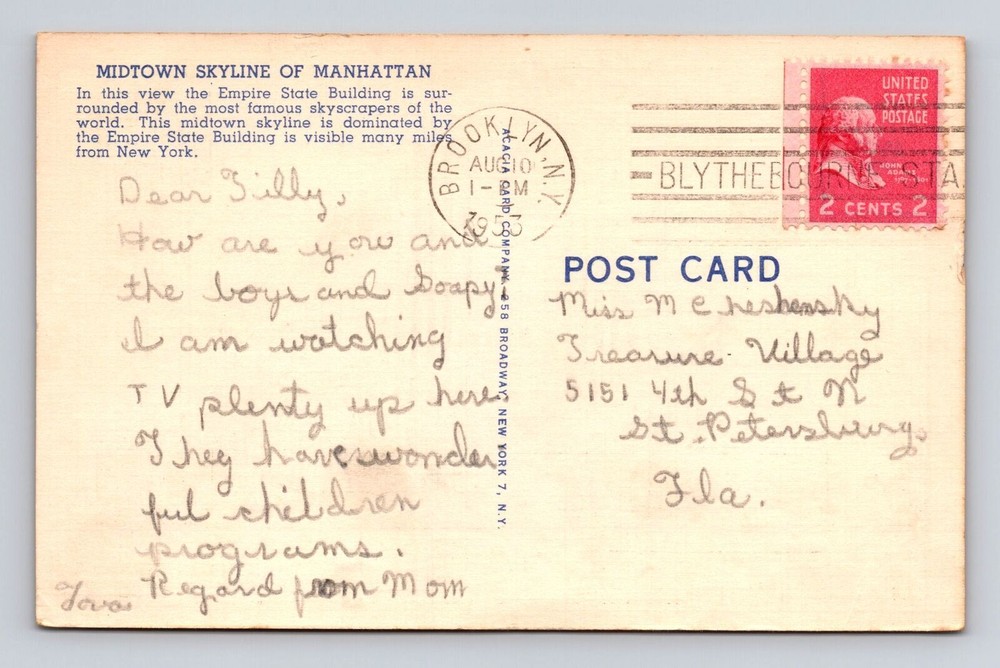 MIDTOWN SKYLINE OF MANHATTAN
In this view the Empire State Building is sur-
rounded by the most famous skyscrapers of the
world. This midtown skyline is dominated by
the Empire State Building is visible many miles
from New York.
Dear Tilly,
How are you and
the boys and Soapy.
I am watching
TV plenty up here.
They have wonder
ful children
programs.
Regard from Mom
ACACIA CARD COMPANY, 258 BROADWAY, NEW YORK 7, N.Y.
BROOKLYN, N.Y.
AUG 10
1-PM
1953
BLYTHEBOURNE STA.
UNITED
STATES
POSTAGE
JOHN
ADAMS
2 CENTS 2
POST CARD
Miss M Cheshensky
Treasure Village
5151 4th St N
St. Petersburg,
Fla.